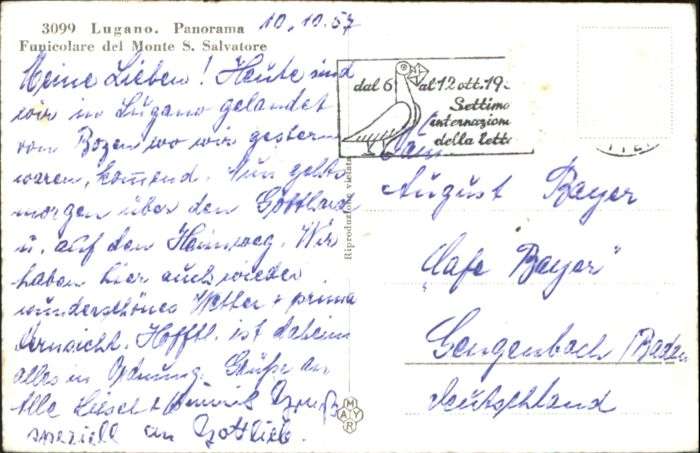 3099 Lugano. Panorama
Funicolare del Monte S. Salvatore
10.10.57
Meine Lieben! Heute sind
wir in Lugano gelandet
von Bozen wo wir gestern
waren, kommend. Nun geht's
morgen über den Gotthard
u. auf den Heimweg. Wir
haben hier auch wieder
wunderschönes Wetter + prima
Fernsicht. Hofftl. ist daheim
alles in Ordnung. Grüße an
Alle Liesel +
speziell an Gottlieb.
dal 6 al 12 ott. 19
Settima
internazion
della lett
Riproduzione vietata
MAYR
Fam
August Bayer
"Cafe Bayer"
Gengenbach/Baden
Deutschland